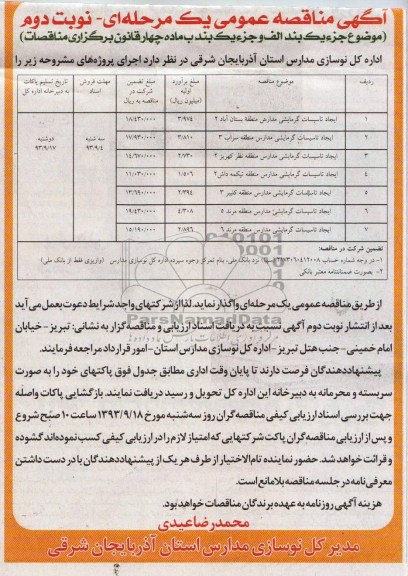 آگهی مناقصه عمومی یک مرحله‌ای - نوبت دوم
(موضوع جزء یک بند الف و جزء یک بند ب ماده چهار قانون برگزاری مناقصات)
اداره کل نوسازی مدارس استان آذربایجان شرقی در نظر دارد اجرای پروژه‌های مشروحه زیر را
ردیف موضوع مناقصه مبلغ برآورد اولیه (میلیون ریال) مبلغ تضمین شرکت در مناقصه به ریال مهلت فروش اسناد تاریخ تسلیم پاکات به دبیرخانه اداره کل
۱ ایجاد تاسیسات گرمایشی مدارس منطقه بستان آباد ۲ ۳/۹۷۴ ۱۸/۴۳۰/۰۰۰
۲ ایجاد تاسیسات گرمایشی مدارس منطقه سراب ۳ ۳/۸۱۰ ۱۷/۹۳۰/۰۰۰
۳ ایجاد تاسیسات گرمایشی مدارس منطقه نظر کهریز ۲ ۲/۷۳۰ ۱۴/۶۷۰/۰۰۰
۴ ایجاد تاسیسات گرمایشی مدارس منطقه تیکمه داش ۲ ۱/۵۰۶ ۱۱/۰۳۰/۰۰۰
۵ ایجاد تاسیسات گرمایشی مدارس منطقه کلیبر ۳ ۲/۳۹۴ ۱۳/۶۹۰/۰۰۰
۶ ایجاد تاسیسات گرمایشی مدارس منطقه مرند ۵ ۴/۳۰۸ ۱۹/۴۳۰/۰۰۰
۷ ایجاد تاسیسات گرمایشی مدارس منطقه مرند ۶ ۲/۸۹۶ ۱۵/۱۹۰/۰۰۰
سه شنبه ۹۳/۹/۴
دوشنبه ۹۳/۹/۱۷
تضمین شرکت در مناقصه:
۱- در وجه شماره حساب نزد بانک ملی، بنام تمرکز وجوه سپرده اداره کل نوسازی مدارس (واریزی فقط از بانک ملی)
۲- بصورت ضمانتنامه معتبر بانکی
از طریق مناقصه عمومی یک مرحله‌ای واگذار نماید. لذا از شرکتهای واجد شرایط دعوت بعمل می‌آید
بعد از انتشار نوبت دوم آگهی نسبت به دریافت اسناد ارزیابی و مناقصه گزار به نشانی: تبریز - خیابان
امام خمینی - جنب هتل تبریز - اداره کل نوسازی مدارس استان - امور قرارداد مراجعه فرمایند.
پیشنهاددهندگان فرصت دارند تا پایان وقت اداری مطابق جدول فوق پاکتهای خود را به صورت
سربسته و محرمانه به دبیرخانه این اداره کل تحویل و رسید دریافت نمایند. بازگشایی پاکات واصله
جهت بررسی اسناد ارزیابی کیفی مناقصه گران روز سه‌شنبه مورخ ۱۳۹۳/۹/۱۸ ساعت ۱۰ صبح شروع
و پس از ارزیابی مناقصه گران پاکت شرکتهایی که امتیاز لازم را در ارزیابی کیفی کسب نموده‌اند گشوده
و قرائت خواهد شد. حضور نماینده تام‌الاختیار از طرف هر یک از پیشنهاددهندگان با در دست داشتن
معرفی‌نامه در جلسه مناقصه بلامانع است.
هزینه آگهی روزنامه به عهده برندگان مناقصات خواهد بود.
محمدرضا عیدی
مدیر کل نوسازی مدارس استان آذربایجان شرقی
ParsNamadData